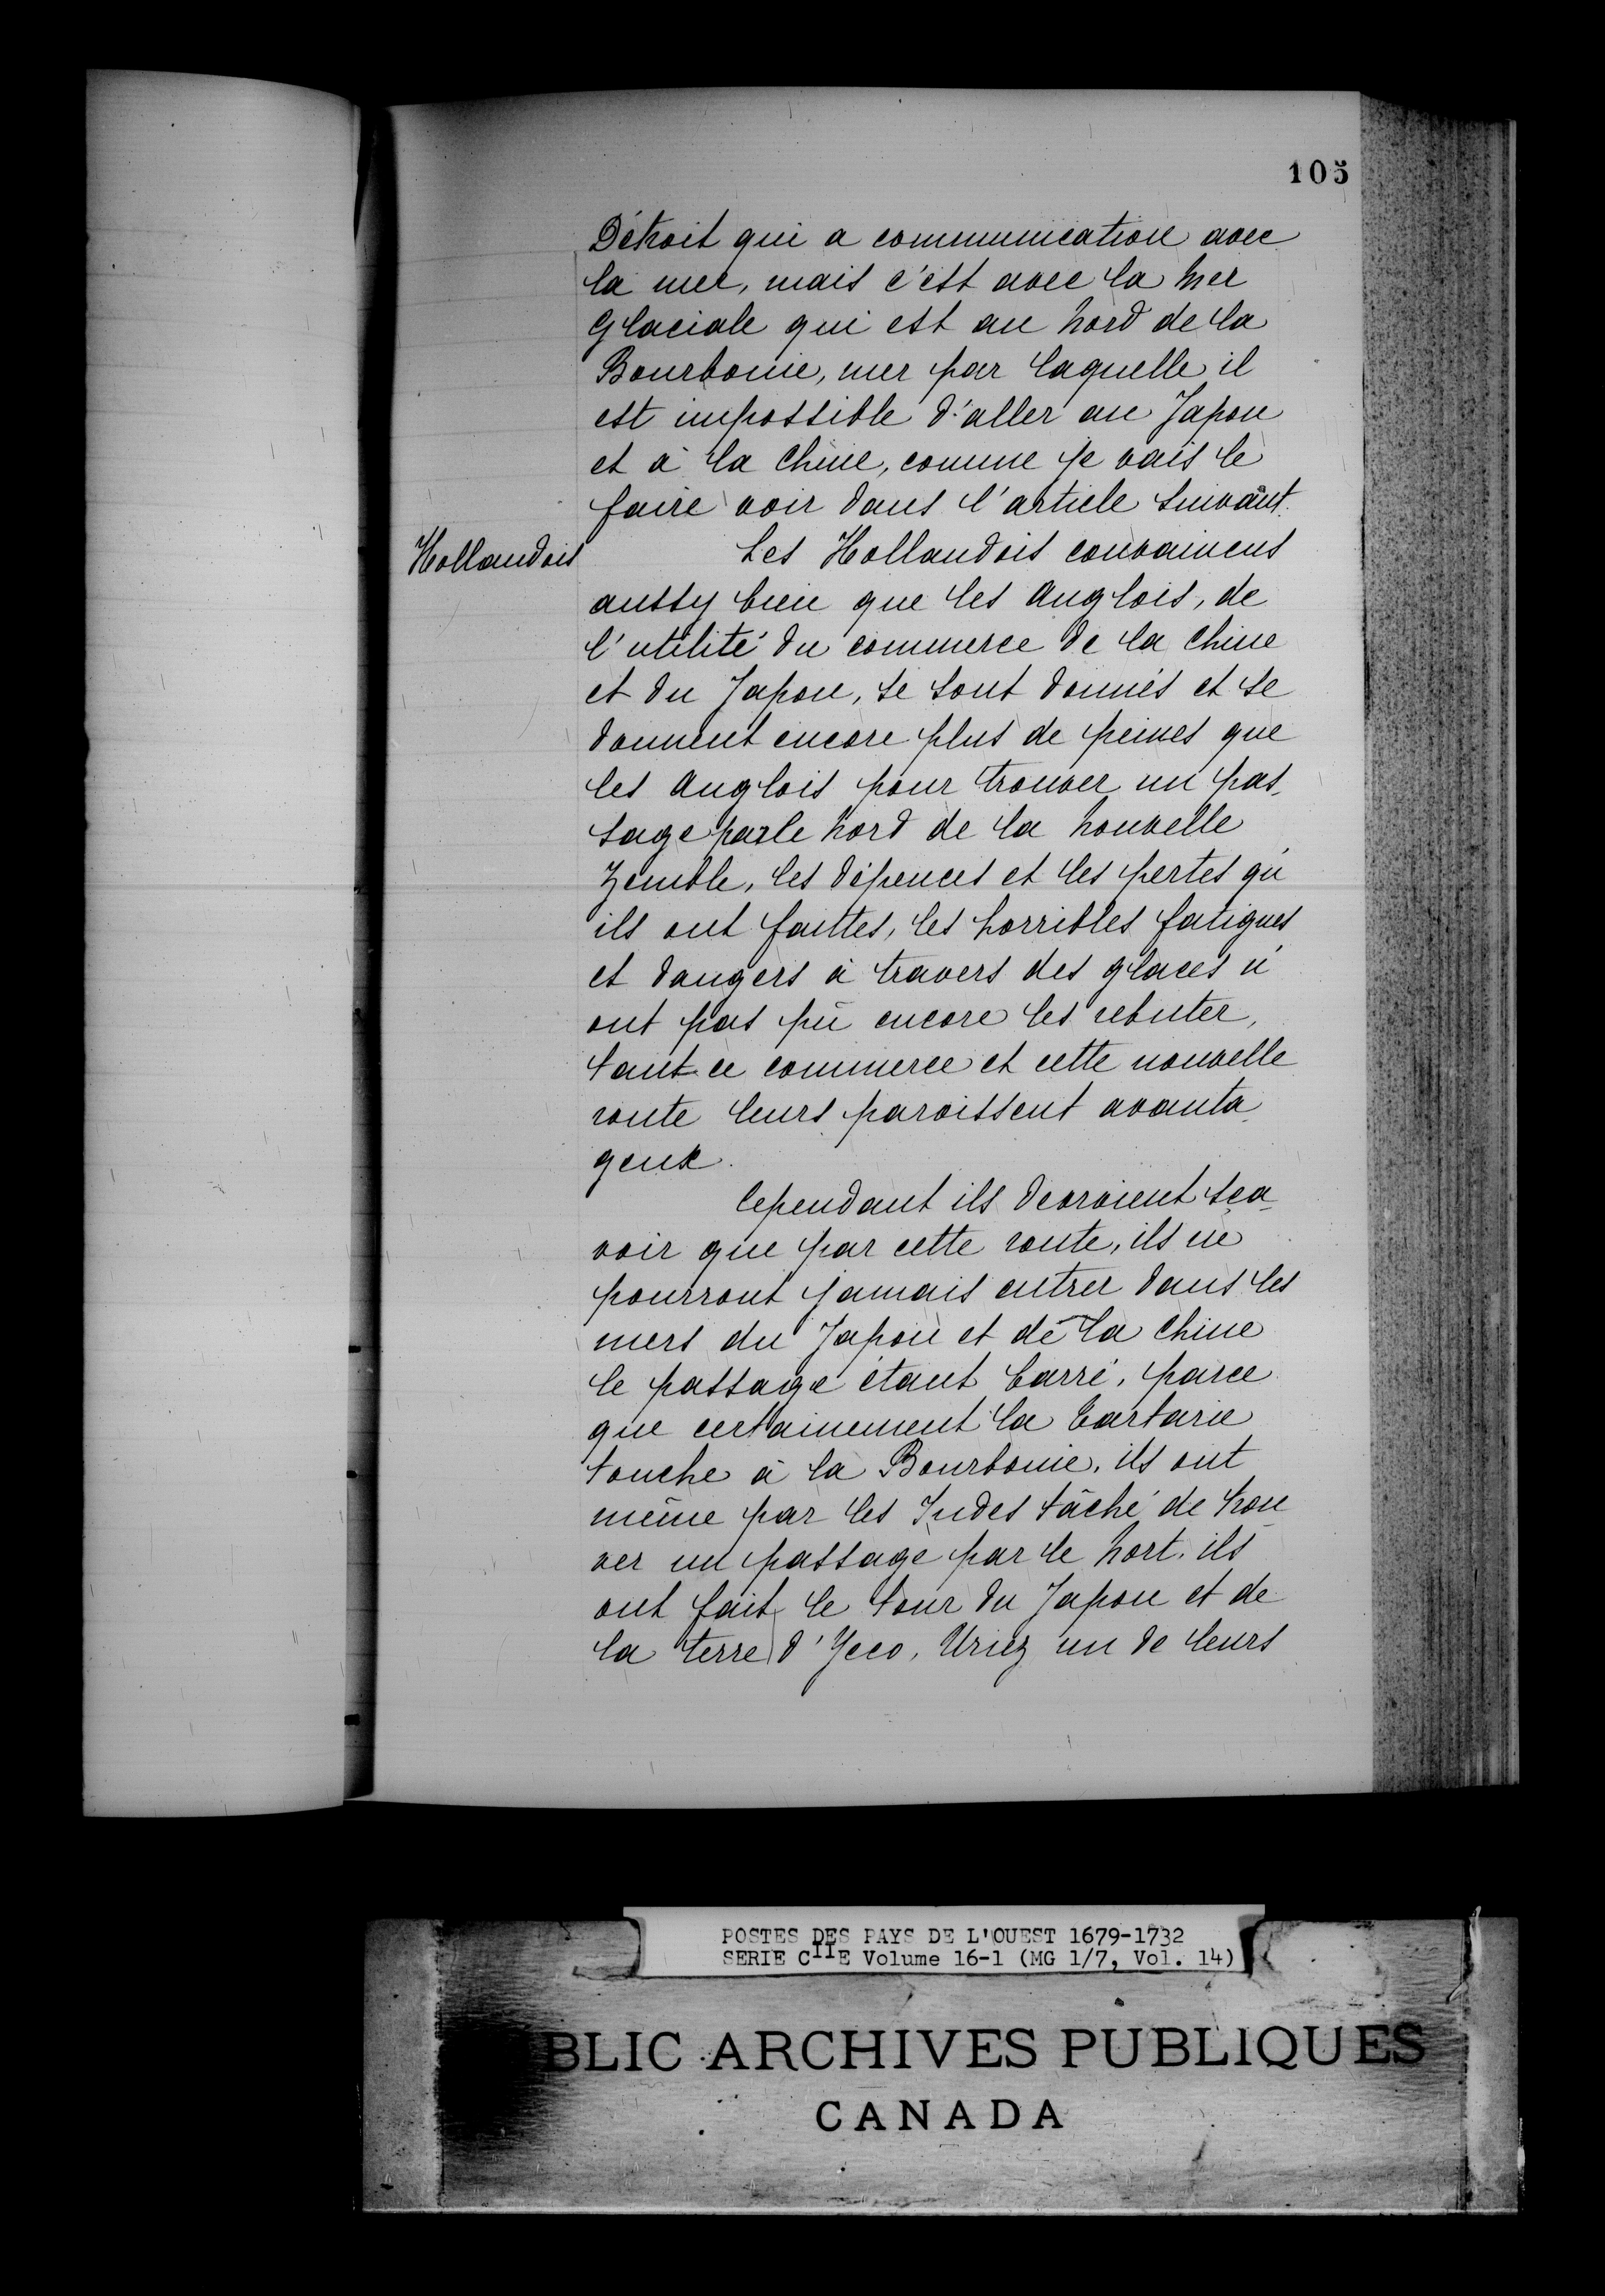 105
Détroit qui a communication avec
la mer, mais c'est avec la mer
Glaciale qui est au Nord de la
Bourbonie, mer par laquelle il
est impossible d'aller au Japon
et à la Chine, comme je vais le
faire voir dans l'article suivant.
Hollandois
Les Hollandois convaincus
aussy bien que les Anglois, de
l'utilité du commerce de la Chine
et du Japon, se sont donnés et se
donnent encore plus de peines que
les Anglois pour trouver un pas-
sage par le Nord de la Nouvelle
Zemble, les dépences et les pertes qu'
ils ont faittes, les horribles fatigues
et dangers à travers des glaces n'
ont pas pû encore les rebuter,
tant ce commerce et cette nouvelle
route leurs paroissent avanta-
geux.
Cependant ils devroient sça-
voir que par cette route, ils ne
pourront jamais entrer dans les
mers du Japon et de la Chine
le passage étant barré, parce
que certainement la Tartarie
touche à la Bourbonie, ils ont
même par les Indes tâché de trou-
ver un passage par le Nort. ils
ont fait le tour du Japon et de
la terre d'Yeco, Uriez un de leurs
POSTES DES PAYS DE L'OUEST 1679-1732
SERIE CIIE Volume 16-1 (MG 1/7, Vol. 14)
BLIC ARCHIVES PUBLIQUES
CANADA